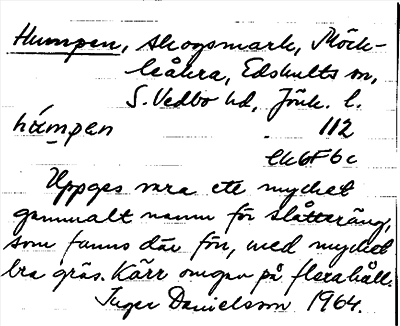 Humpen, skogsmark, Möck-
leåkra, Edshults sn,
S. Vedbo hd, Jönk. l.
hómpen 112
ek6F6c
Uppges vara ett mycket
gammalt namn för slåtteräng,
som fanns där förr, med mycket
bra gräs. Kärr omger på flera håll.
Inger Danielsson 1964.